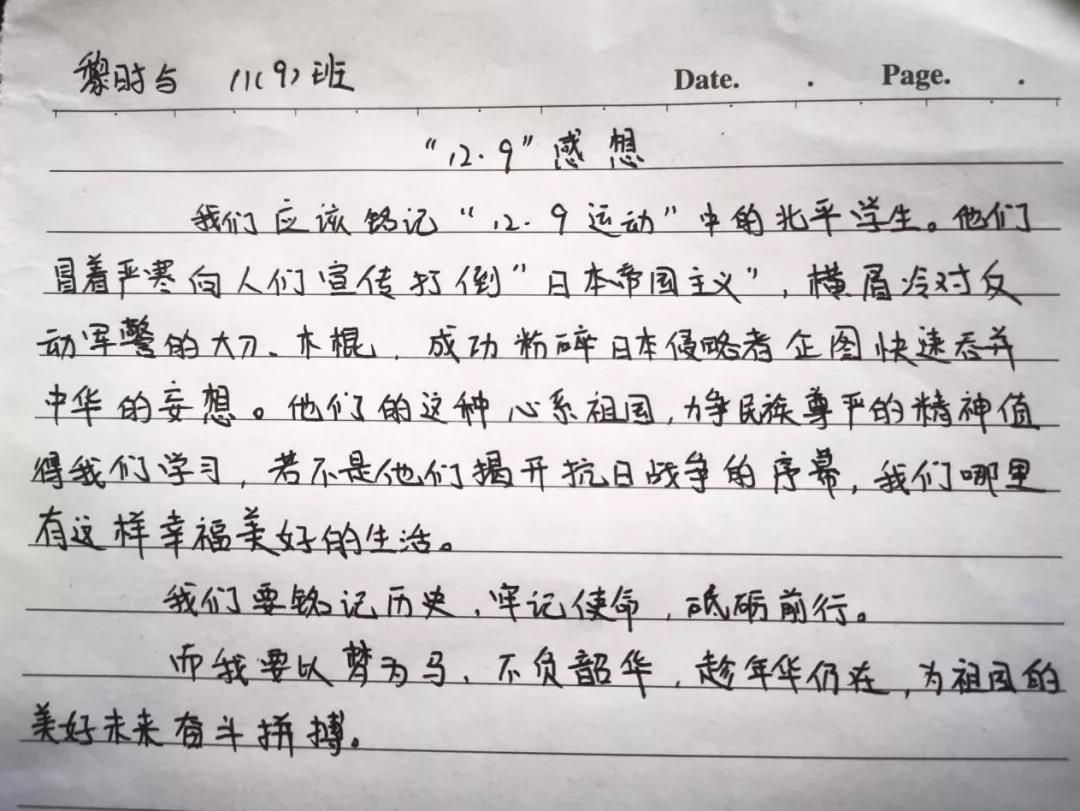 黎时与 11(9)班 Date. . Page. .
“12.9”感想
我们应该铭记“12.9运动”中的北平学生。他们
冒着严寒向人们宣传打倒“日本帝国主义”，横眉冷对反
动军警的大刀、木棍，成功粉碎日本侵略者企图快速吞并
中华的妄想。他们的这种心系祖国，力争民族尊严的精神值
得我们学习，若不是他们揭开抗日战争的序幕，我们哪里
有这样幸福美好的生活。
我们要铭记历史，牢记使命，砥砺前行。
而我要以梦为马，不负韶华，趁年华仍在，为祖国的
美好未来奋斗拼搏。